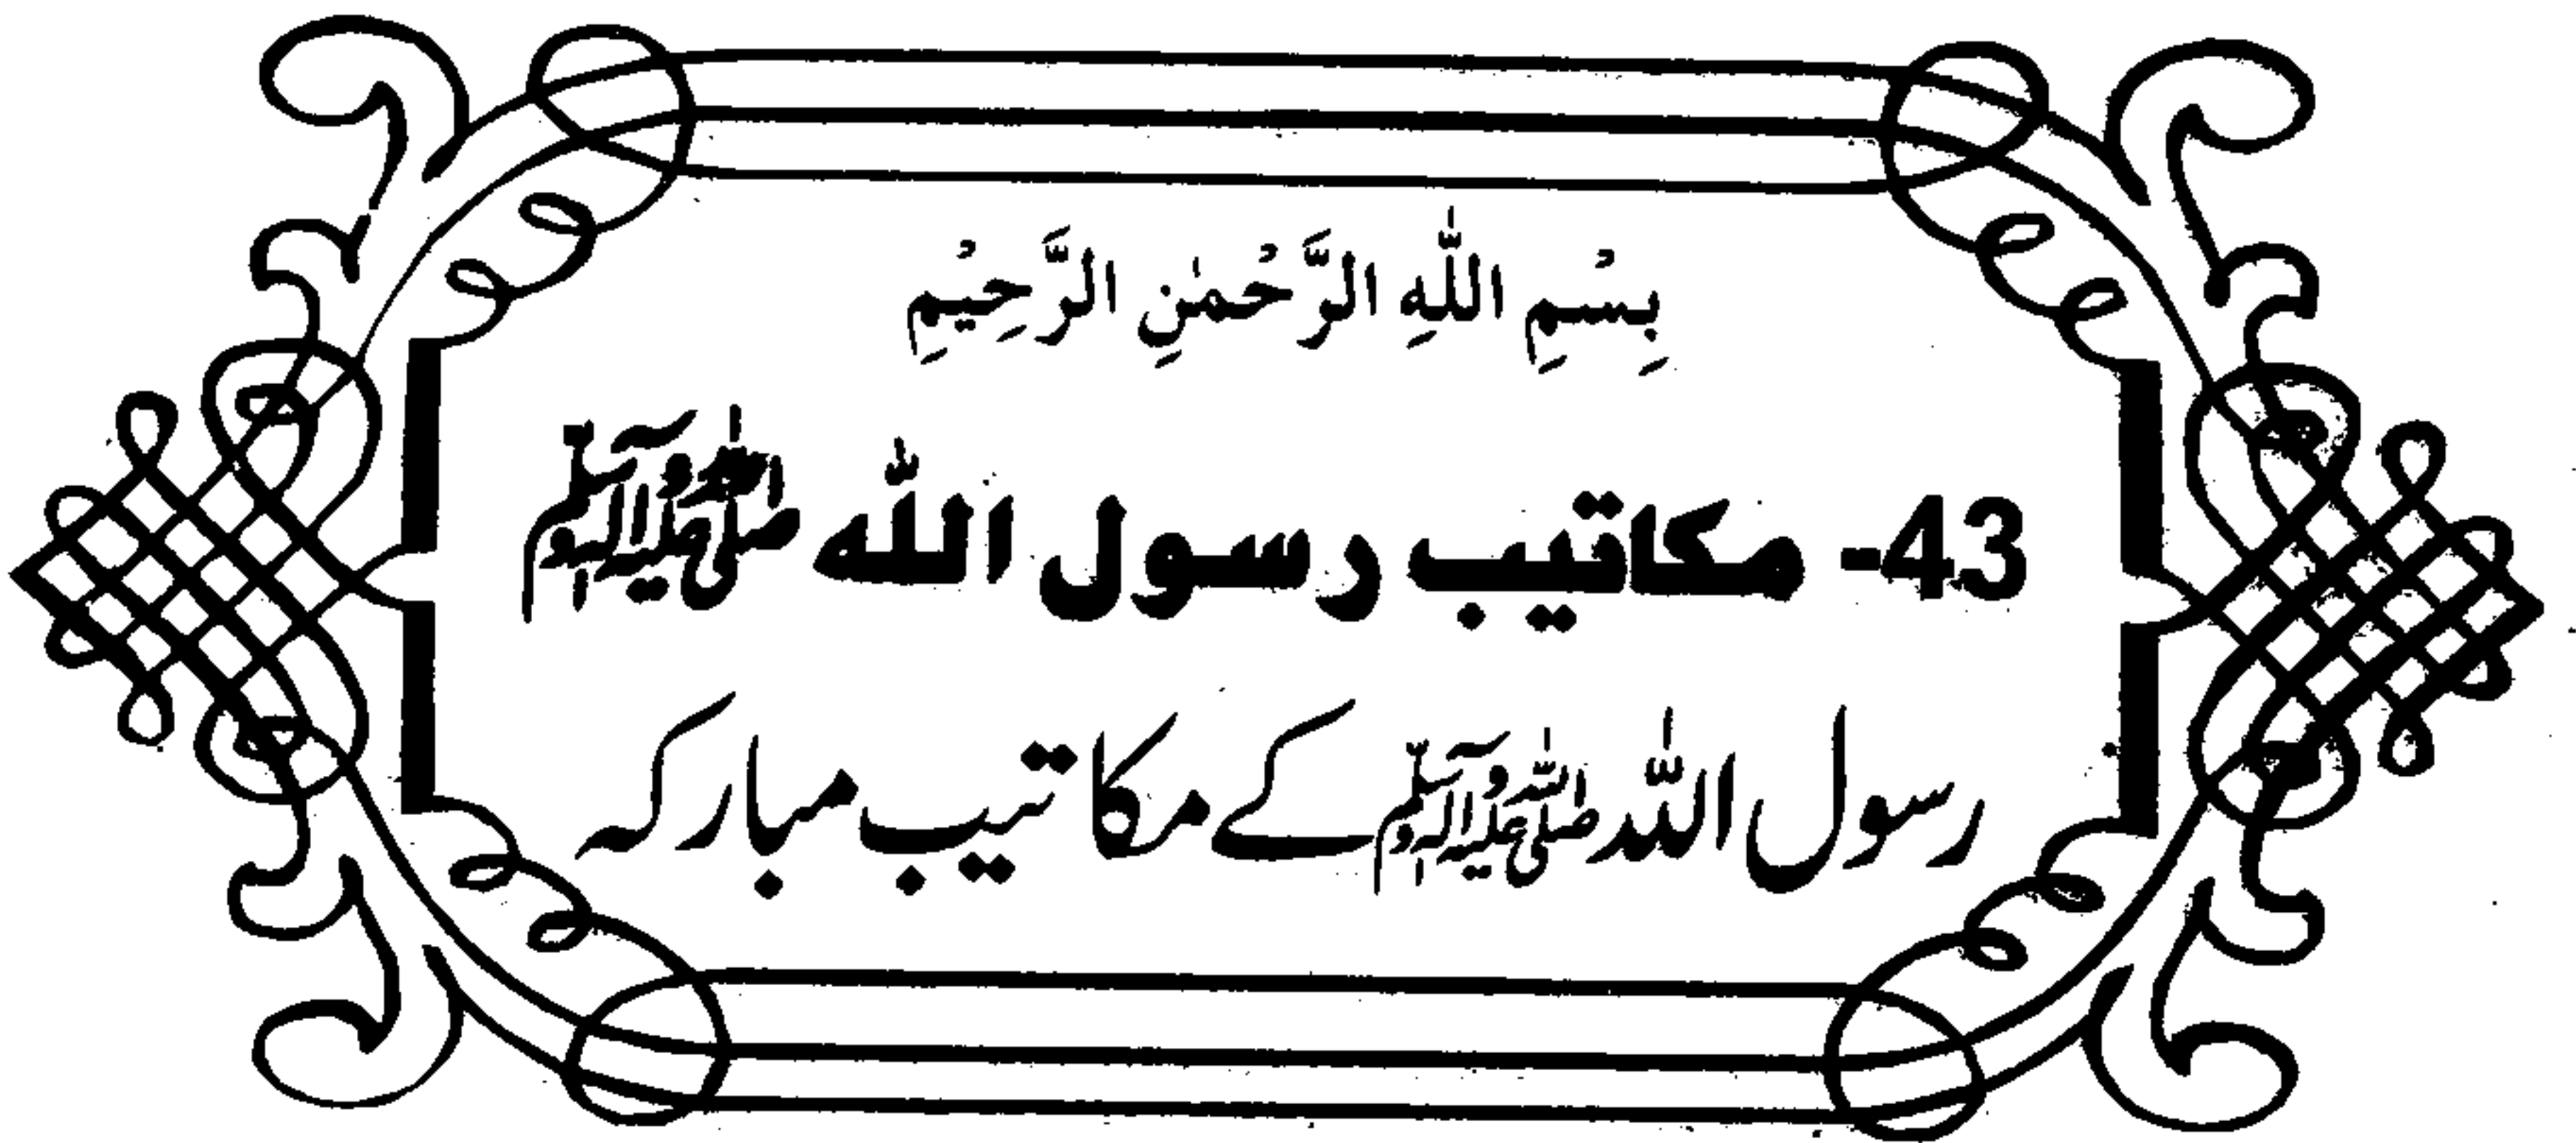 بِسْمِ اللّٰهِ الرَّحْمٰنِ الرَّحِيْمِ
43- مكاتيب رسول اللّٰه صلى الله عليه وآله وسلم
رسول اللّٰہ صلی اللہ علیہ وآلہ وسلم کے مکاتیب مبارکہ